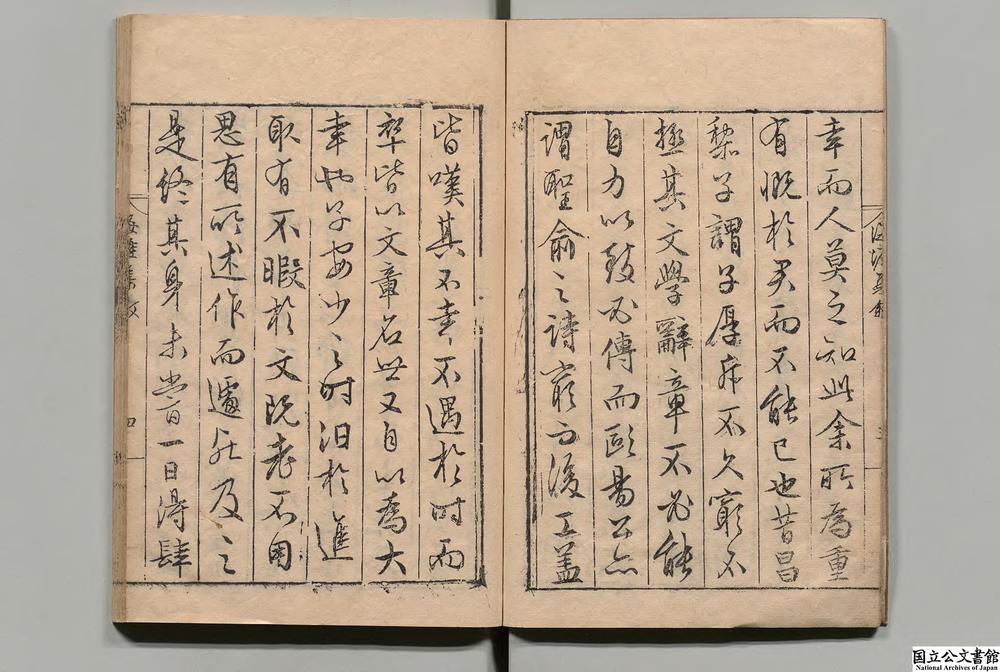 幸而人莫之知此余所為重
有慨於君而不能已也昔昌
黎子謂子厚斥不久窮不
極其文學辭章不必能
自力以致必傳而歐陽公亦
謂聖俞之詩窮而後工蓋
皆嘆其不幸不遇於時而
卒皆以文章名世又自以為大
幸也子安少之時汨於進
取有不暇於文既老不用
思有所述作而遽殁及之
是終其身未嘗一日得肆
四
国立公文書館
National Archives of Japan